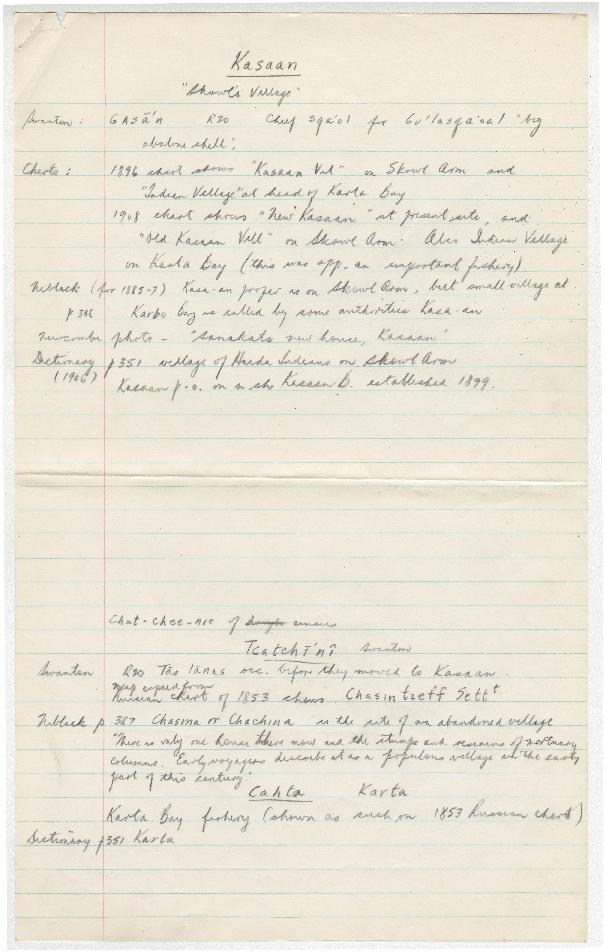 Kasaan
"Skowl's Village"
Swanton: GASā'n R20 Chief sqā'ol for Gu'lasqā'oal 'big
abalone shell';
Charts: 1896 chart shows "Kasaan Vil" on Skowl Arm and
"Indian Village" at head of Karta Bay
1908 chart shows "New Kasaan" at present site, and
"Old Kasaan Vill" on Skowl Arm. Also Indian Village
on Karta Bay (this was app. an important fishery)
Niblack (for 1885-7) Kasa-an proper is on Skowl Arm, but small village at
p 386 Karbo bay is called by some authorities Kasa-an
Newcombe photo - "Sanakats new house, Kasaan"
Dictionary p 351 village of Haida Indians on Skowl Arm
(1906) Kasaan p.o. on n sho Kasaan B. established 1899.
Chat-chee-nie of census
Tcatchī'nî Swanton
Swanton R20 Tāo lānas occ. before they moved to Kasaan.
map copied from
Russian chart of 1853 shows Chasintzeff Settt
Niblack p 387 Chasina or Chachina is the site of an abandoned village
"There is only one house there now and the stumps and remains of mortuary
columns. Early voyagers describe it as a populous village in the early
part of this century."
Cahta Karta
Karta Bay fishery (shown as such on 1853 Russian chart)
Dictionary p351 Karta